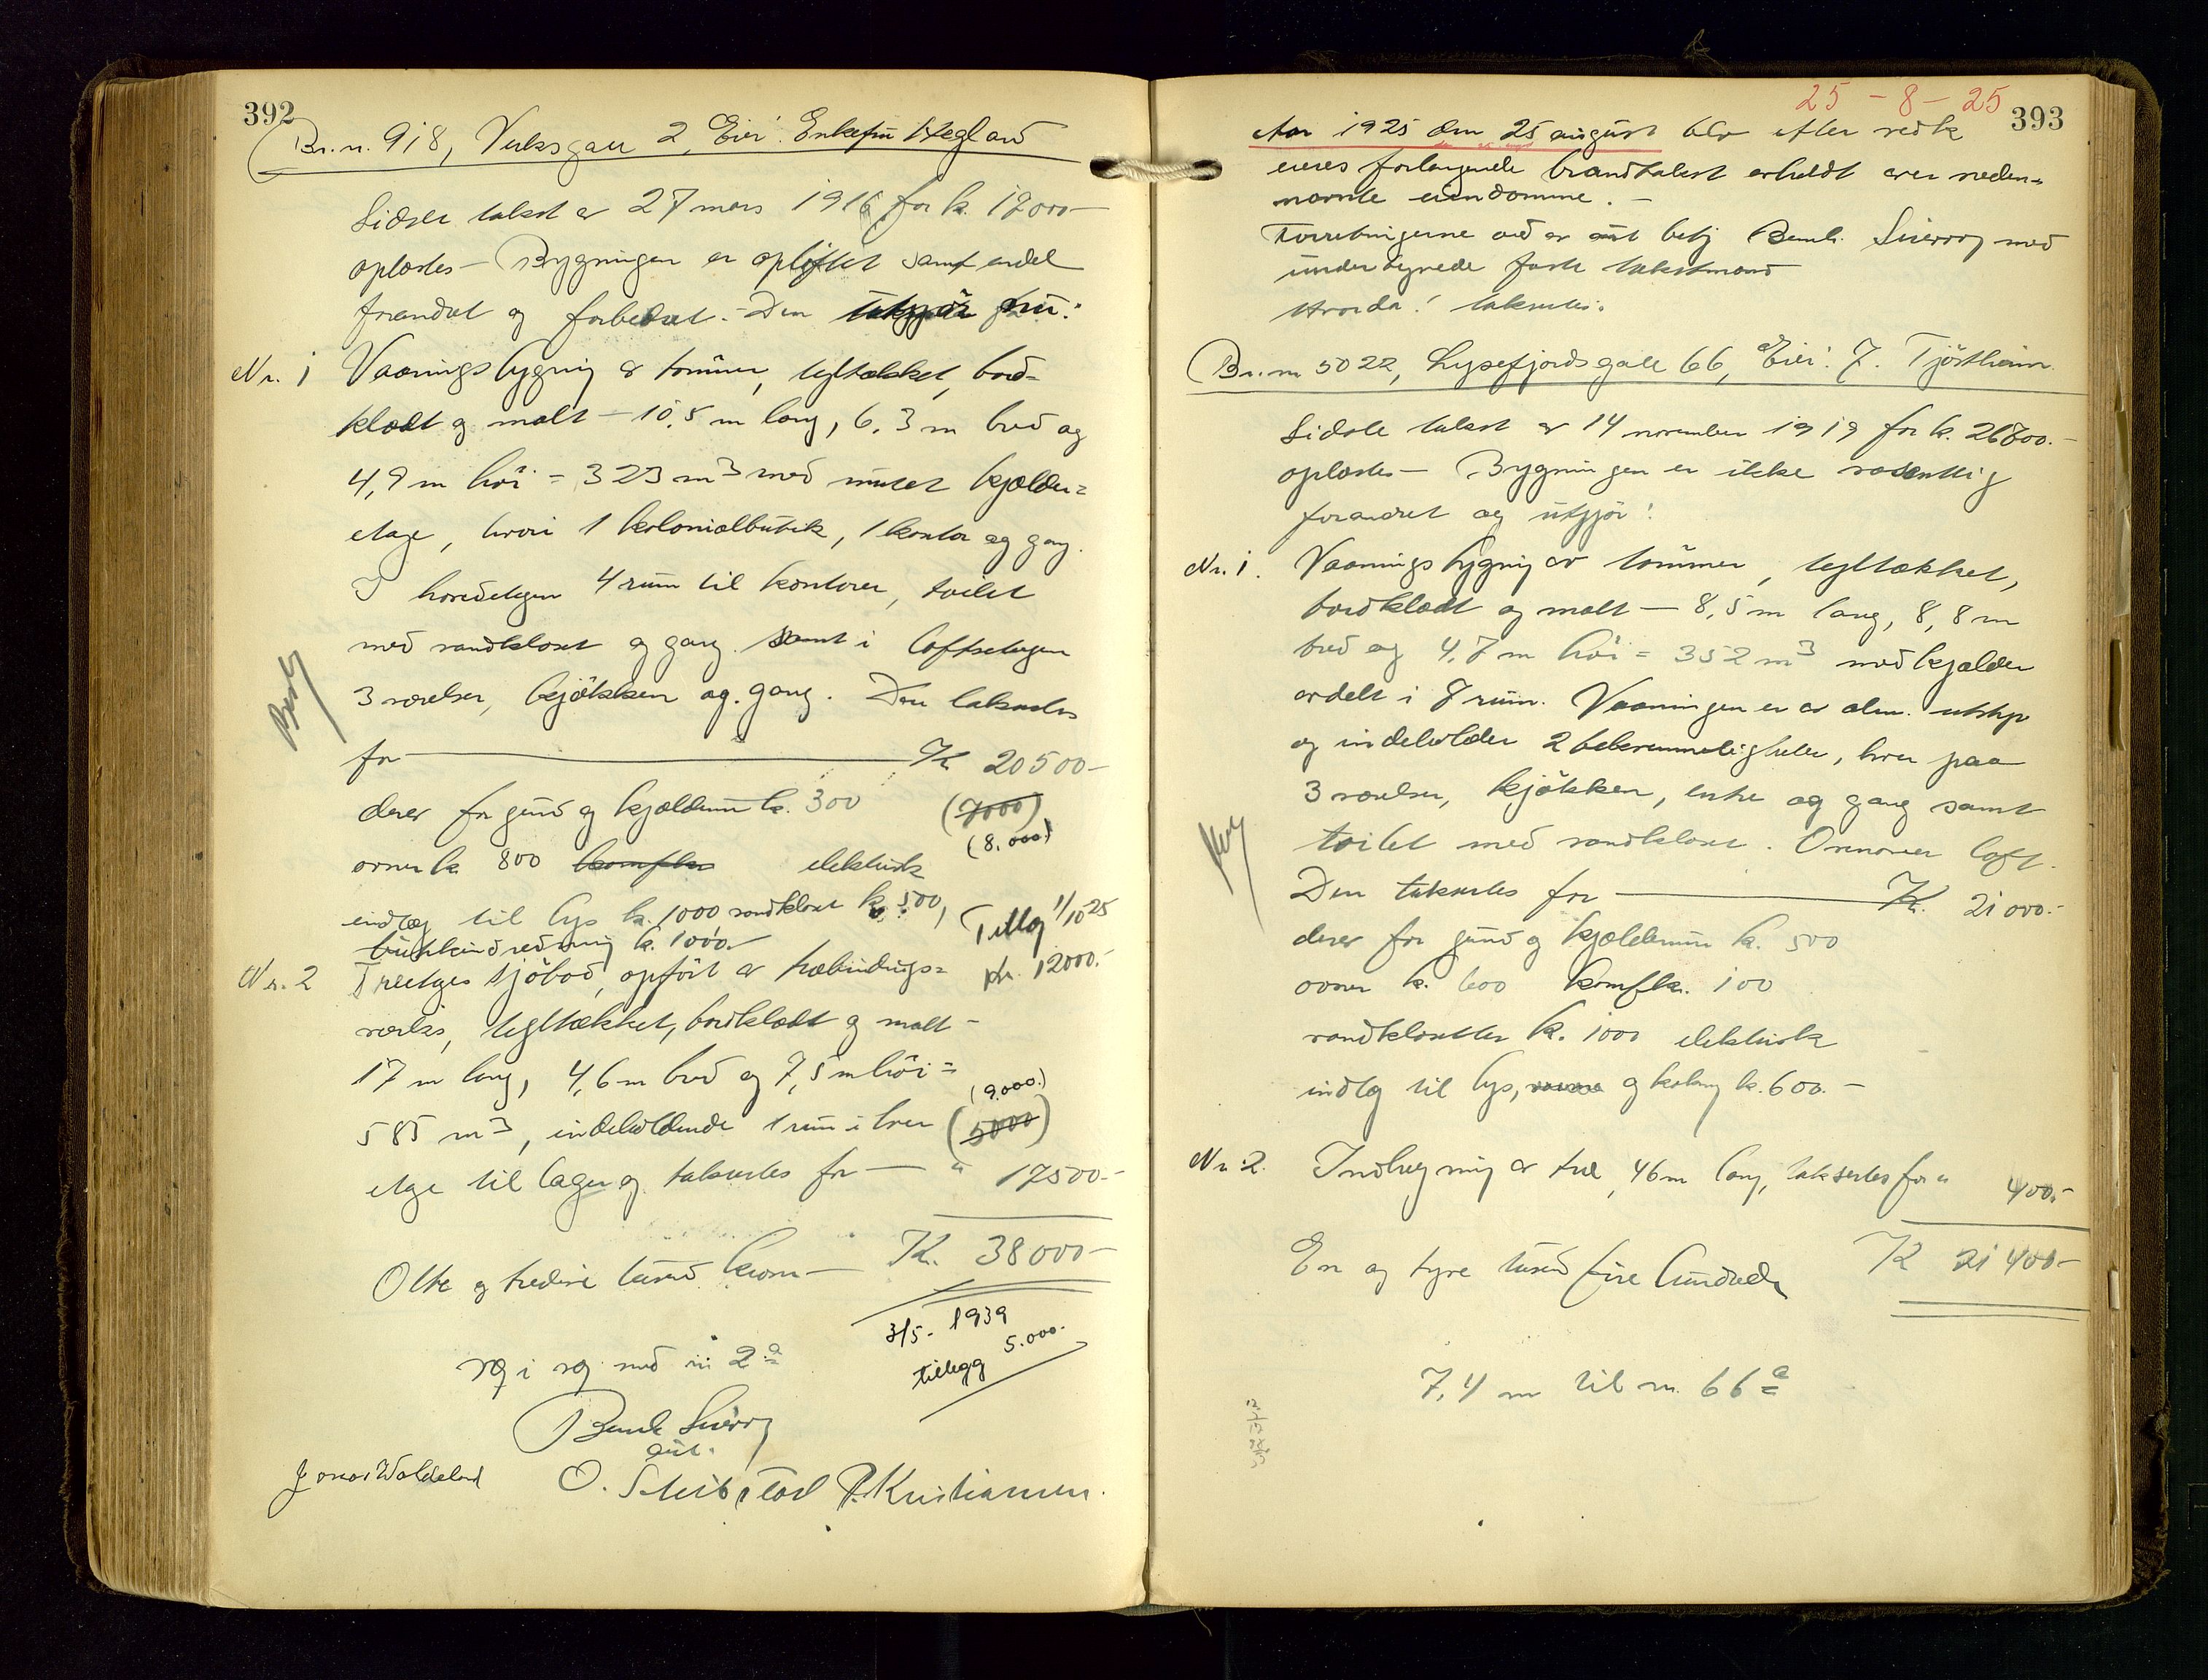 392
Br.n. 918, Valbsgate 2, Eier: Enkefru Hegland
Sidste takst av 27 mars 1916 for k. 12000-
oplæstes - Bygningen er opløftet samt endel
forandret og forbedret. - Den utgjør nu:
Nr. 1 Vaaningsbygning av tømmer, tegltækket, bord-
klædt og malt - 10,5 m lang, 6,3 m bred og
4,9 m høi = 323 m3 med muret kjælder-
etage, hvori 1 kolonialbutik, 1 kontor og gang.
I hovedetagen 4 rum til kontorer, toilet
med vandkloset og gang samt i loftsetagen
3 værelser, kjøkken og gang. Den takseres
for Kr. 20500-
derav for grund og kjældermur k. 300 (7000)
(8.000)
ovner k. 800 komfur elektrisk
indlæg til lys k. 1000 vandkloset k. 500,
Tillæg 1/10 25
butikindredning k. 1000.-
kr. 12000.-
Nr. 2 Treetages sjøbod, opført av træbindings-
værks, tegltækket, bordklædt og malt -
17 m lang, 4,6 m bred og 7,5 m høi =
(9.000.)
585 m3, indeholdende 1 rum i hver (5000)
etage til lager og takseres for - " 17500.-
Otte og tredive tusind kroner - Kr. 38000-
3/5. 1939
tillegg 5.000.-
væg i væg med nr. 2a
Bernh. Sverdrup
aut.
Jonas Waldeland O. Skeibstad P. Kristiansen.
Besg
25-8-25
393
Aar 1925 den 25 august blev efter vedk
eieres forlangende brandtakst avholdt over neden-
nævnte eiendomme. -
Forretningerne ved av aut betj Bernh. Sverdrup med
undertegnede faste takstmænd
Hvorda! takseres:
Br.nr 5022, Lysefjordsgate 66, Eier: J. Tjøstheim
Sidste takst av 14 november 1919 for k. 26800.-
oplæstes - Bygningen er ikke væsentlig
forandret og utgjør:
Nr. 1. Vaaningsbygning av tømmer, tegltækket,
bordklædt og malt - 8,5 m lang, 8,8 m
bred og 4,7 m høi = 352 m3 med kjælder
avdelt i 8 rum. Vaaningen er av alm. utstyr
og indeholder 2 bekvemmeligheter, hver paa
3 værelser, kjøkken, entre og gang samt
toilet med vandkloset. Ovenover loft.
Den takseres for Kr. 21000.-
derav for grund og kjældermur k. 500
ovner k. 600 komfur. 100
vandklosetter k. 1000 elektrisk
indlæg til lys, varme og kokning k. 600.-
Nr. 2. Indhegning av træ, 46 m lang, takseres for " 400.-
En og tyve tusind fire hundrede Kr 21400-
7,4 m til nr. 66a